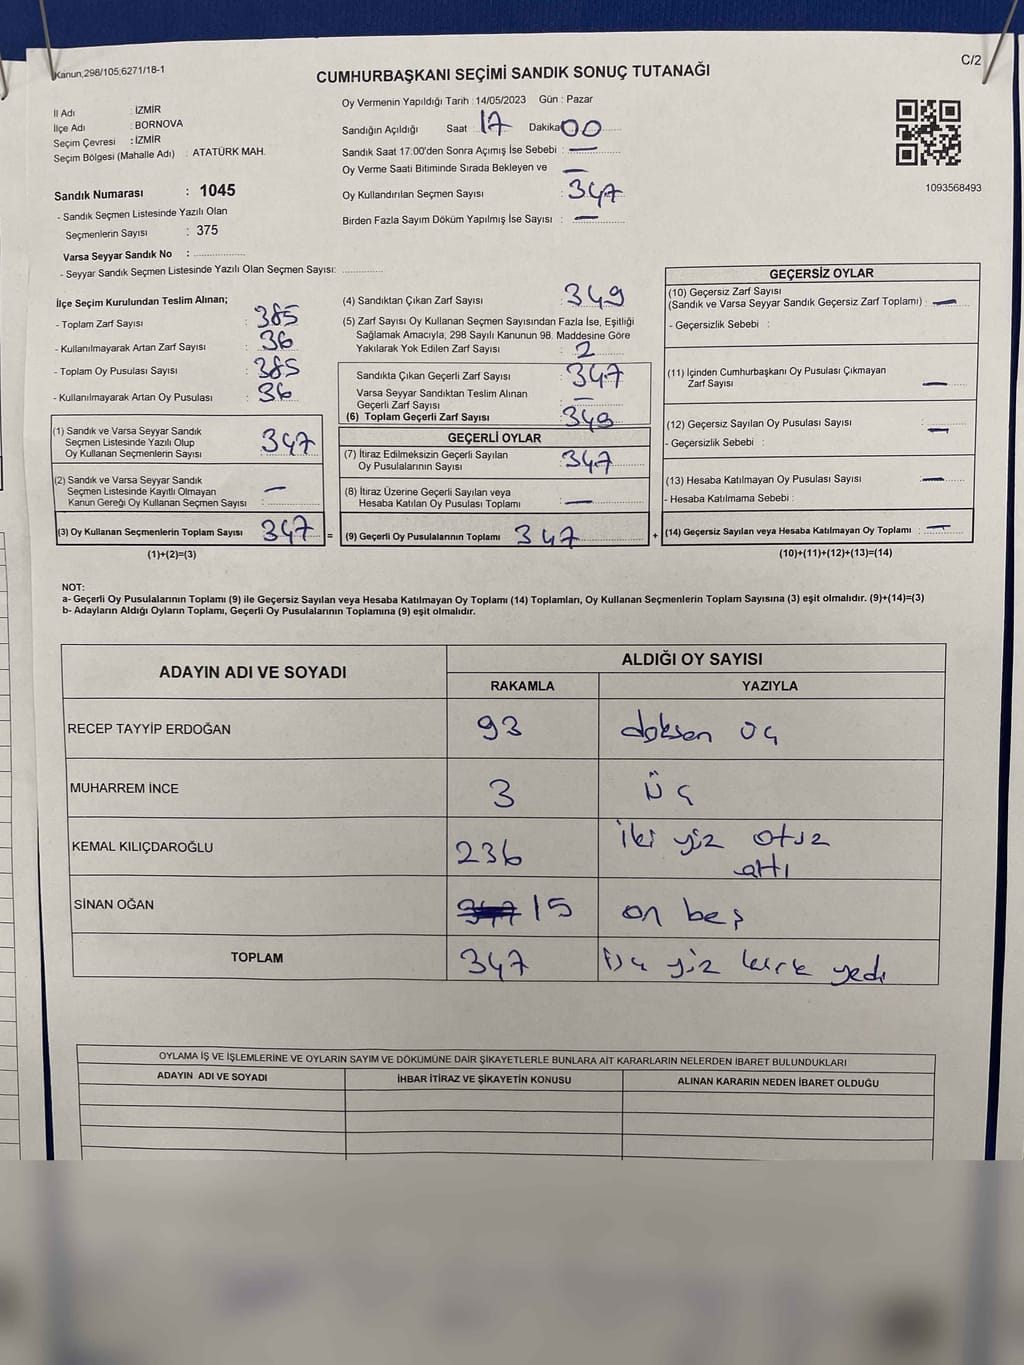 Kanun,298/105;6271/18-1
C/2
CUMHURBAŞKANI SEÇİMİ SANDIK SONUÇ TUTANAĞI
İl Adı : İZMİR
İlçe Adı : BORNOVA
Seçim Çevresi : İZMİR
Seçim Bölgesi (Mahalle Adı) : ATATÜRK MAH.
Sandık Numarası : 1045
- Sandık Seçmen Listesinde Yazılı Olan
Seçmenlerin Sayısı : 375
Varsa Seyyar Sandık No :
- Seyyar Sandık Seçmen Listesinde Yazılı Olan Seçmen Sayısı:
Oy Vermenin Yapıldığı Tarih : 14/05/2023 Gün : Pazar
Sandığın Açıldığı Saat 17 Dakika 00
Sandık Saat 17:00'den Sonra Açımış İse Sebebi : —
Oy Verme Saati Bitiminde Sırada Bekleyen ve —
Oy Kullandırılan Seçmen Sayısı 347
Birden Fazla Sayım Döküm Yapılmış İse Sayısı : —
1093568493
İlçe Seçim Kurulundan Teslim Alınan;
- Toplam Zarf Sayısı : 385
- Kullanılmayarak Artan Zarf Sayısı : 36
- Toplam Oy Pusulası Sayısı : 385
- Kullanılmayarak Artan Oy Pusulası : 36
(1) Sandık ve Varsa Seyyar Sandık
Seçmen Listesinde Yazılı Olup
Oy Kullanan Seçmenlerin Sayısı 347
(2) Sandık ve Varsa Seyyar Sandık
Seçmen Listesinde Kayıtlı Olmayan
Kanun Gereği Oy Kullanan Seçmen Sayısı : —
(3) Oy Kullanan Seçmenlerin Toplam Sayısı 347 =
(1)+(2)=(3)
(4) Sandıktan Çıkan Zarf Sayısı : 349
(5) Zarf Sayısı Oy Kullanan Seçmen Sayısından Fazla İse, Eşitliği
Sağlamak Amacıyla; 298 Sayılı Kanunun 98. Maddesine Göre
Yakılarak Yok Edilen Zarf Sayısı : 2
Sandıkta Çıkan Geçerli Zarf Sayısı : 347
Varsa Seyyar Sandıktan Teslim Alınan
Geçerli Zarf Sayısı : —
(6) Toplam Geçerli Zarf Sayısı : 349
GEÇERLİ OYLAR
(7) İtiraz Edilmeksizin Geçerli Sayılan
Oy Pusulalarının Sayısı : 347
(8) İtiraz Üzerine Geçerli Sayılan veya
Hesaba Katılan Oy Pusulası Toplamı : —
(9) Geçerli Oy Pusulalarının Toplamı 347 +
GEÇERSİZ OYLAR
(10) Geçersiz Zarf Sayısı
(Sandık ve Varsa Seyyar Sandık Geçersiz Zarf Toplamı) : —
- Geçersizlik Sebebi :
(11) İçinden Cumhurbaşkanı Oy Pusulası Çıkmayan
Zarf Sayısı : —
(12) Geçersiz Sayılan Oy Pusulası Sayısı : —
- Geçersizlik Sebebi :
(13) Hesaba Katılmayan Oy Pusulası Sayısı : —
- Hesaba Katılmama Sebebi :
(14) Geçersiz Sayılan veya Hesaba Katılmayan Oy Toplamı : —
(10)+(11)+(12)+(13)=(14)
NOT:
a- Geçerli Oy Pusulalarının Toplamı (9) ile Geçersiz Sayılan veya Hesaba Katılmayan Oy Toplamı (14) Toplamları, Oy Kullanan Seçmenlerin Toplam Sayısına (3) eşit olmalıdır. (9)+(14)=(3)
b- Adayların Aldığı Oyların Toplamı, Geçerli Oy Pusulalarının Toplamına (9) eşit olmalıdır.
ADAYIN ADI VE SOYADI ALDIĞI OY SAYISI
RAKAMLA YAZIYLA
RECEP TAYYİP ERDOĞAN 93 doksan üç
MUHARREM İNCE 3 üç
KEMAL KILIÇDAROĞLU 236 iki yüz otuz
altı
SİNAN OĞAN 15 on beş
TOPLAM 347 üç yüz kırk yedi
OYLAMA İŞ VE İŞLEMLERİNE VE OYLARIN SAYIM VE DÖKÜMÜNE DAİR ŞİKAYETLERLE BUNLARA AİT KARARLARIN NELERDEN İBARET BULUNDUKLARI
ADAYIN ADI VE SOYADI İHBAR İTİRAZ VE ŞİKAYETİN KONUSU ALINAN KARARIN NEDEN İBARET OLDUĞU